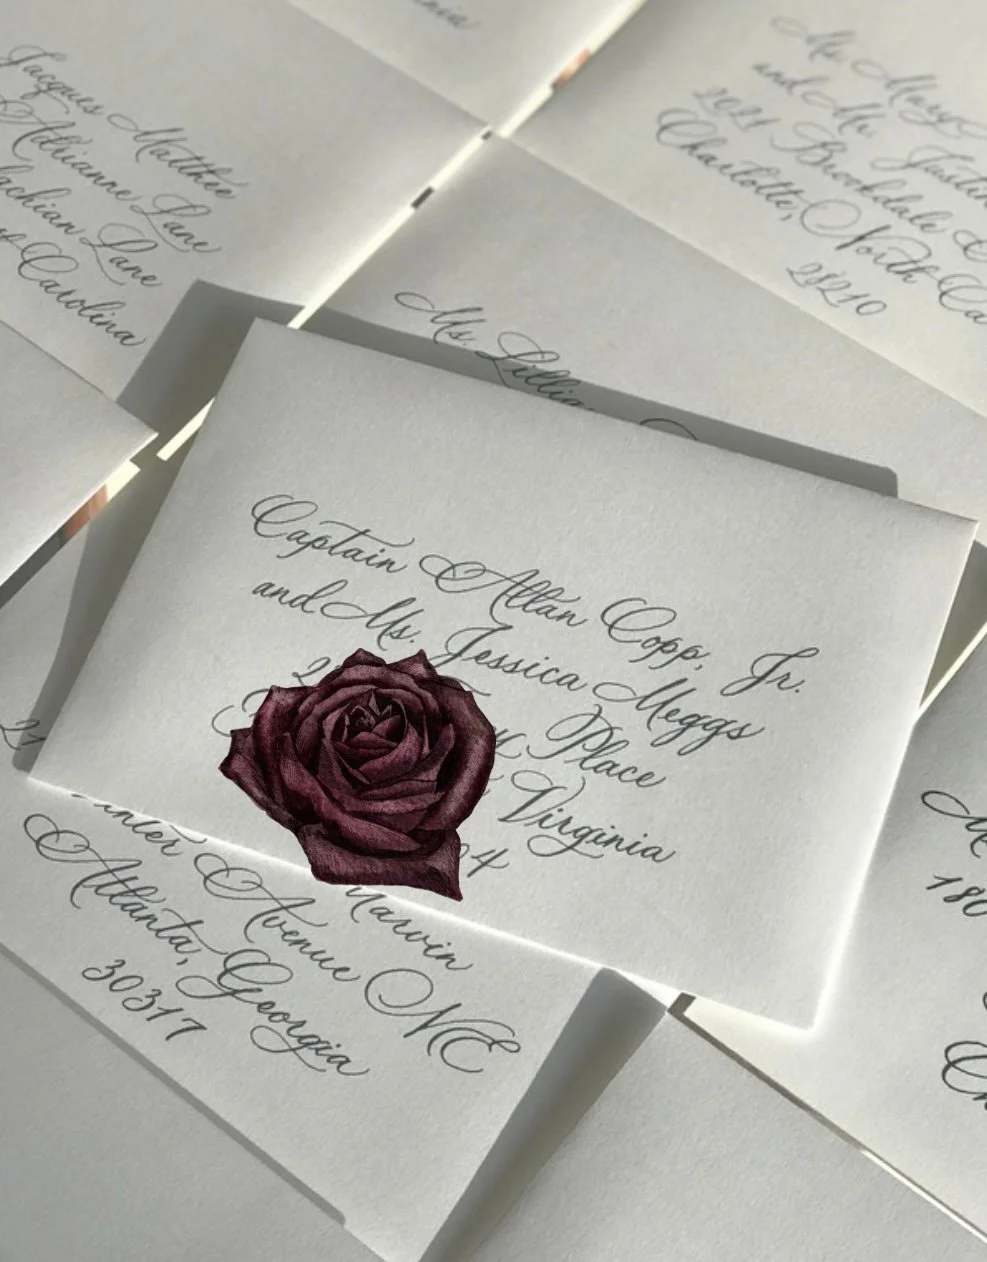 Jacques Matthie
Adrianne Lane
Lane
Carolina
Ms. Mary
and Mr. Justin
2021 Brookdale
Charlotte, North Ca
28210
Ms. Lillia
Captain Allan Copp, Jr.
and Ms. Jessica Meggs
Place
Virginia
4
Marvin
Avenue NE
Atlanta, Georgia
30317
180